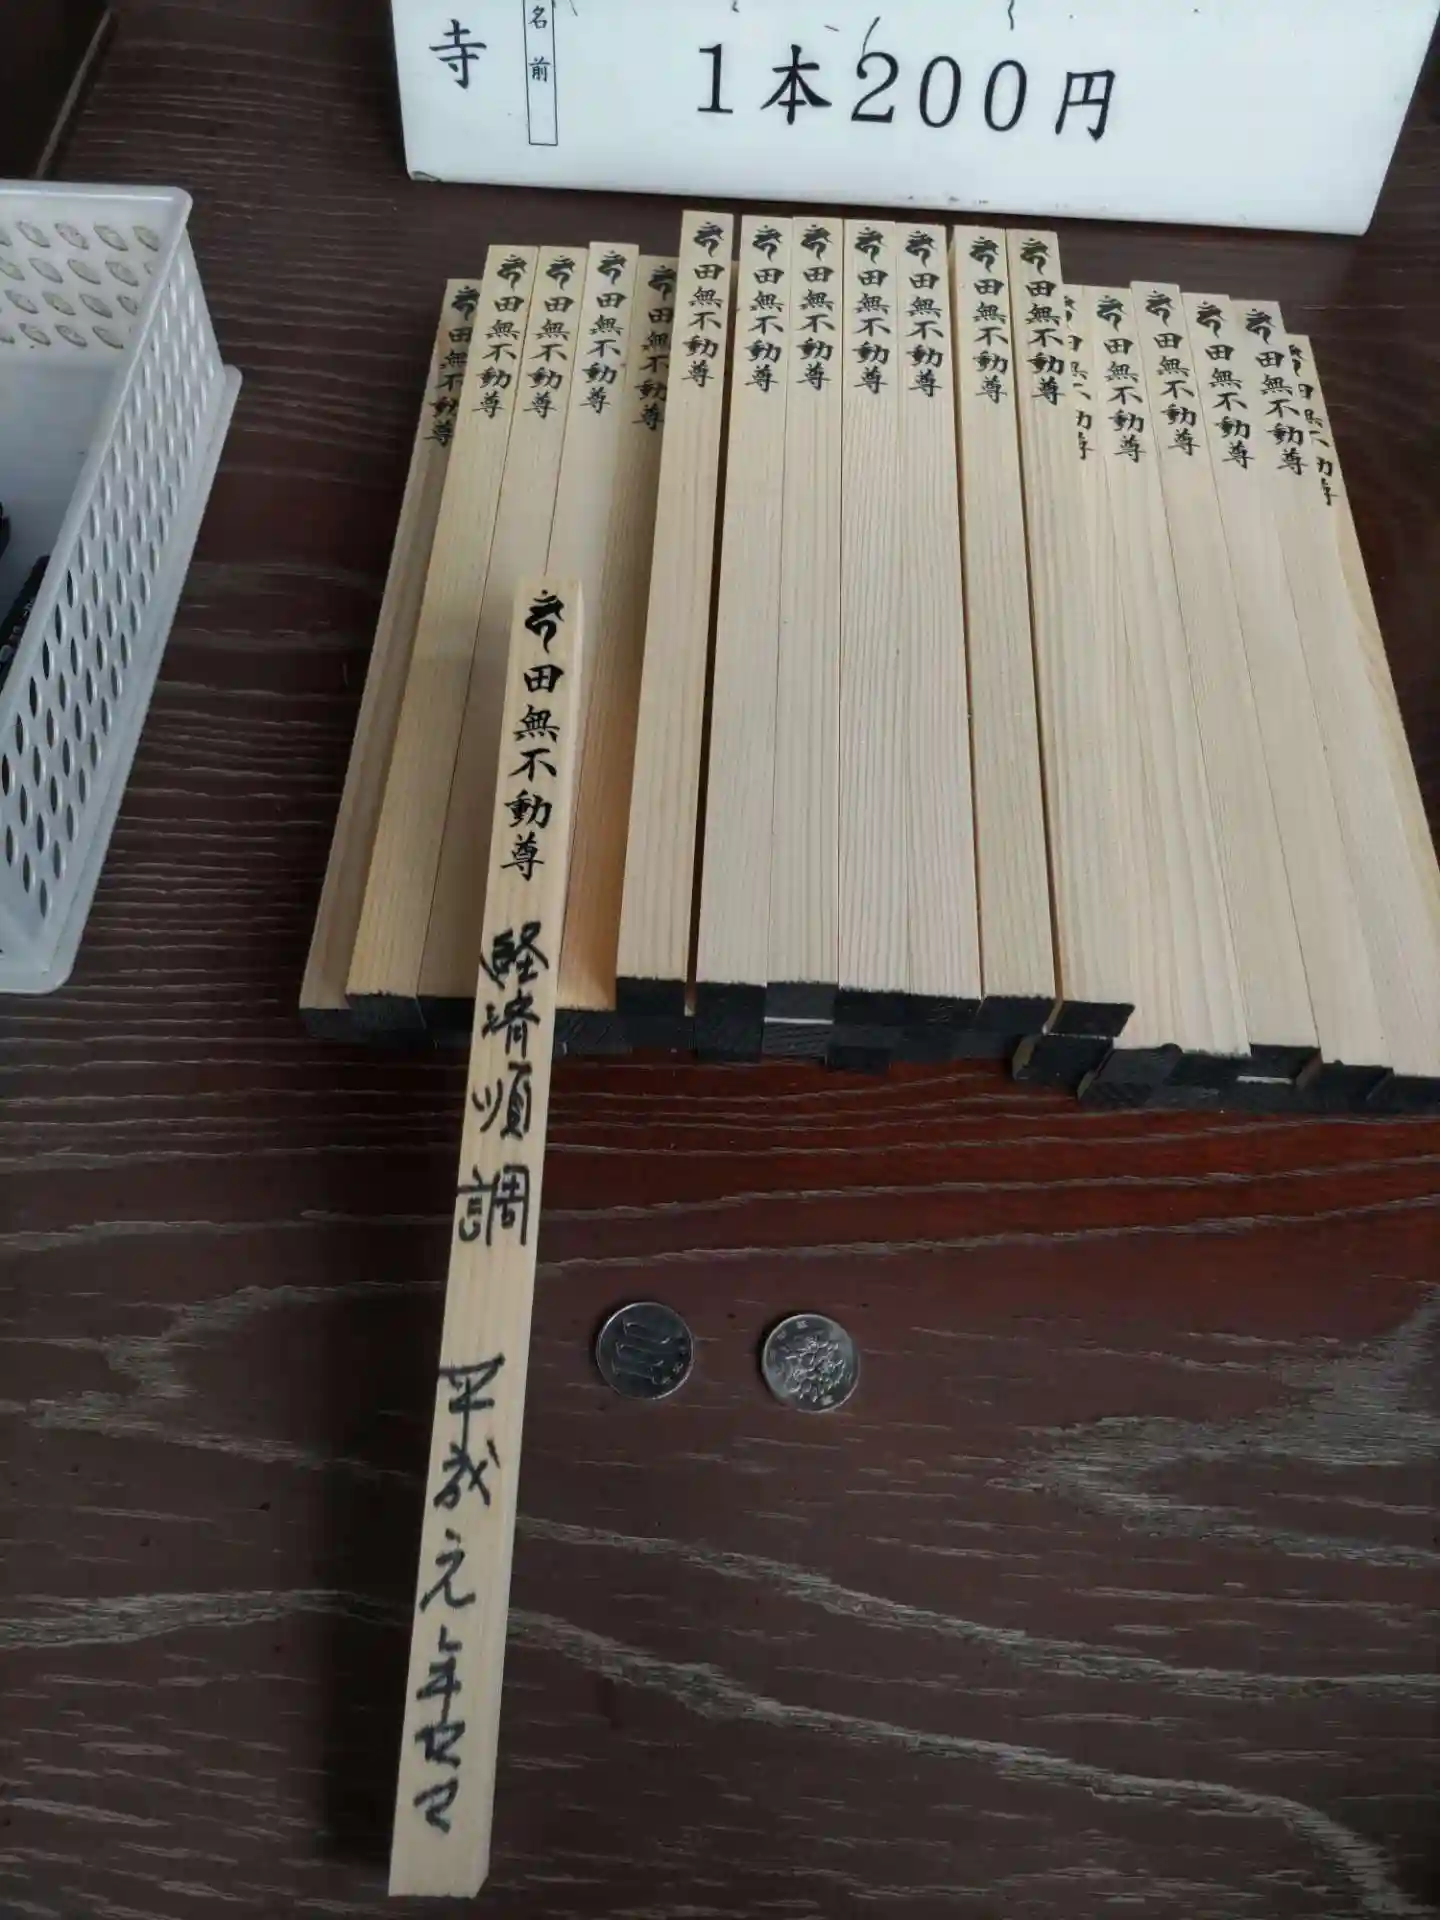 寺
名前
1本200円
田無不動尊
田無不動尊
田無不動尊
田無不動尊
田無不動尊
田無不動尊
田無不動尊
田無不動尊
田無不動尊
田無不動尊
田無不動尊
田無不動尊
田無不動尊
田無不動尊
田無不動尊
田無不動尊
田無不動尊
田無不動尊
経済順調
平成元年セマ
100